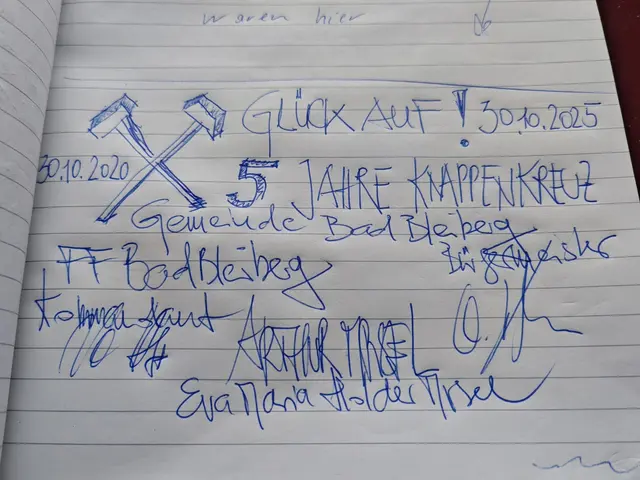 waren hier
GLÜCK AUF! 30.10.2025
30.10.2020 5 JAHRE KNAPPENKREUZ
Gemeinde Bad Bleiberg
FF Bad Bleiberg Bürgermeister
Kommandant
ARTHUR
Eva Maria Holder